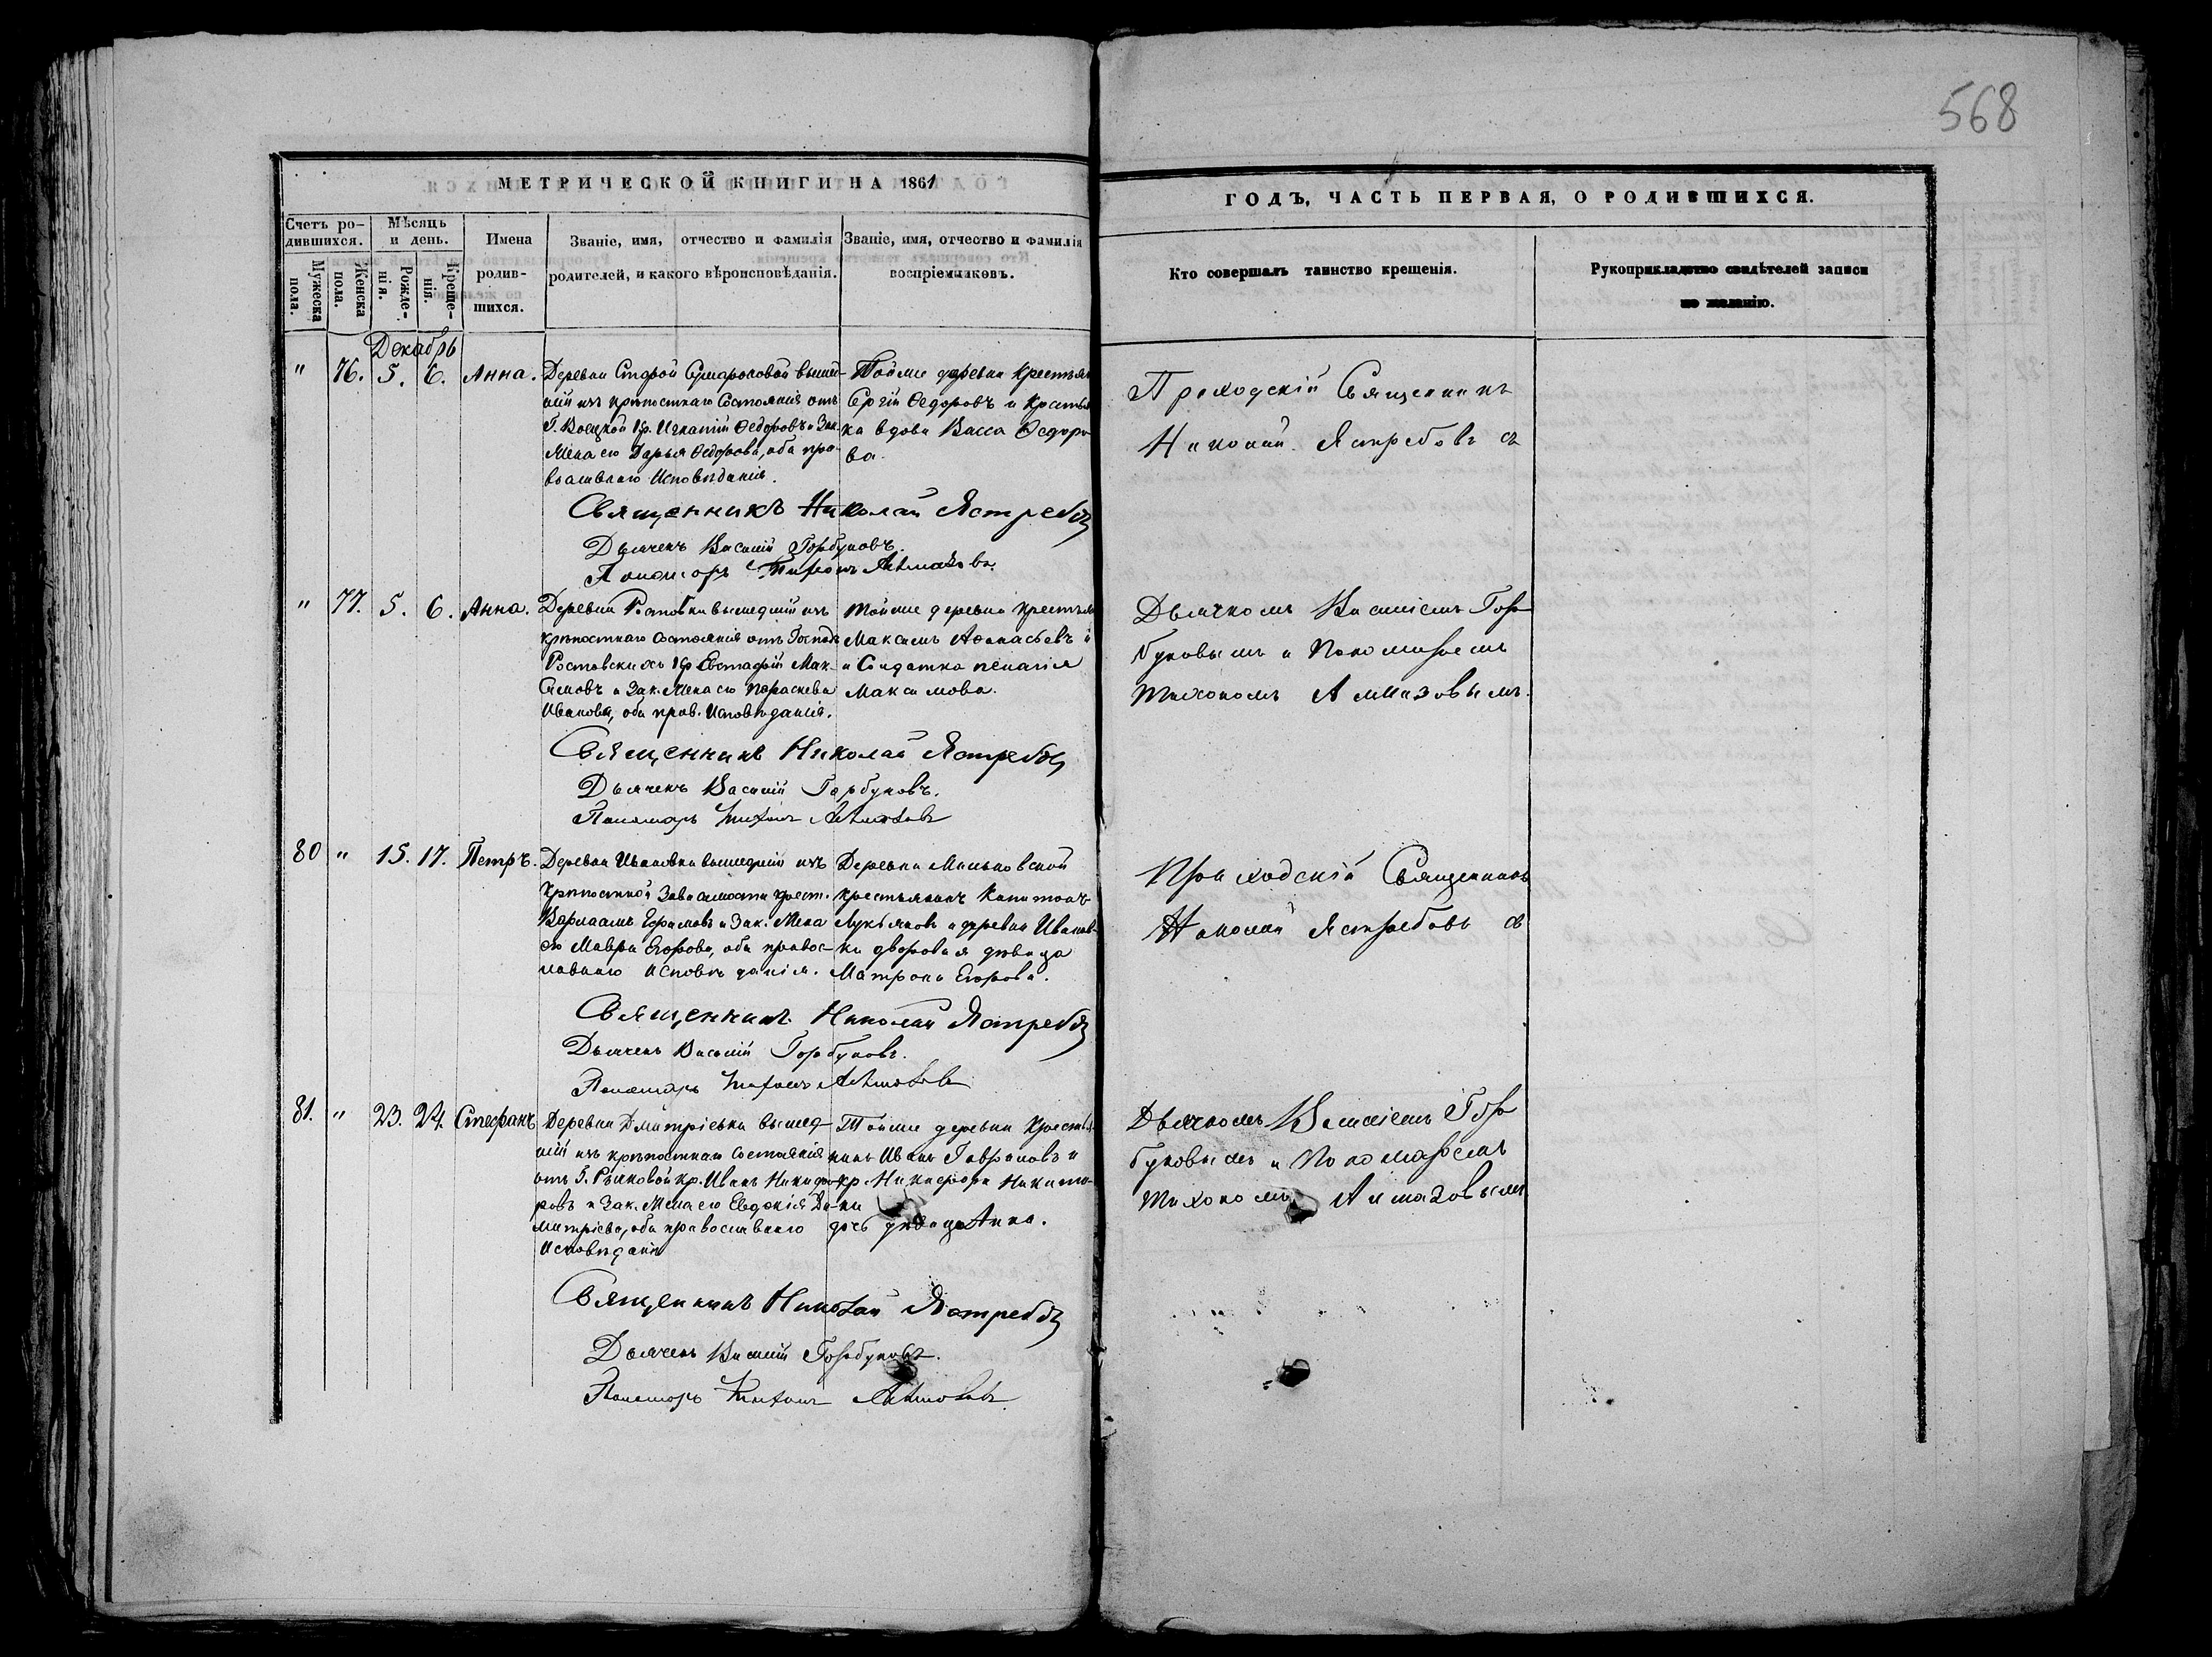 568
МЕТРИЧЕСКОЙ КНИГИ НА 1861
ГОДЪ, ЧАСТЬ ПЕРВАЯ, О РОДИВШИХСЯ.
Счетъ родившихся.
Мужеска пола.
Женска пола.
Мѣсяцъ и день.
Рожденія.
Крещенія.
Имена родившихся.
Званіе, имя, отчество и фамилія
родителей, и какого вѣроисповѣданія.
Званіе, имя, отчество и фамилія
воспріемниковъ.
Кто совершалъ таинство крещенія.
Рукоприкладство свидѣтелей записи
по желанію.
Декабрь
" 76. 5. 6. Анна.
Деревни Старой Сумароковой вышед-
шій изъ крѣпостнаго состоянія отъ
Г. Воецкой кр. Игнатій Ѳедоровъ и Зак.
Жена его Дарья Ѳедорова, оба пра-
вославнаго Исповѣданія.
Тойже деревни Крестьян
Сергій Ѳедоровъ и Крестьян
ка вдова Васса Ѳедоро
ва.
Приходскій Священникъ
Николай Ястребовъ съ
Священникъ Николай Ястребовъ
Дьячекъ Василій Горбуновъ.
Пономарь Тихонъ Алмазовъ.
" 77. 5. 6. Анна.
Деревни Ростовки вышедшій изъ
крѣпостнаго состоянія отъ Господъ
Ростовскихъ кр. Евстафій Мак-
симовъ и Зак. Жена его Параскева
Иванова, оба прав. Исповѣданія.
Тойже деревни крестьян
Максимъ Аѳанасьевъ и
и Солдатка Пелагія
Максимова.
Дьячкомъ Василіемъ Гор-
буновымъ и Пономаремъ
Тихономъ Алмазовымъ.
Священникъ Николай Ястребовъ
Дьячекъ Василій Горбуновъ.
Пономарь Тихонъ Алмазовъ
80 " 15. 17. Петръ.
Деревни Ивановки вышедшій изъ
Крѣпостной Зависимости крест.
Варлаамъ Ефимовъ и Зак. Жена
его Мавра Егорова, оба правос-
лавнаго Исповѣданія.
Деревни Маньковской
крестьянинъ Капитонъ
Лукьяновъ и деревни Иванов-
ки дворовая дѣвица
Матрона Егорова.
Приходскій Священникъ
Николай Ястребовъ съ
Священникъ Николай Ястребовъ
Дьячекъ Василій Горбуновъ.
Пономарь Тихонъ Алмазовъ
81. " 23. 24. Стефанъ
Деревни Дмитріевки вышед-
шій изъ крѣпостнаго состоянія
отъ Г. Рычковой кр. Иванъ Никифо-
ровъ и Зак. Жена его Евдокія Ди-
митріева, оба православнаго
Исповѣданія
Тойже деревни Крестья
нинъ Иванъ Гавриловъ и
кр. Никифора Никити-
ны
дочь дѣвица Анна.
Дьячкомъ Василіемъ Гор
буновымъ и Пономаремъ
Тихономъ Алмазовымъ
Священникъ Николай Ястребовъ
Дьячекъ Василій Горбуновъ.
Пономарь Тихонъ Алмазовъ